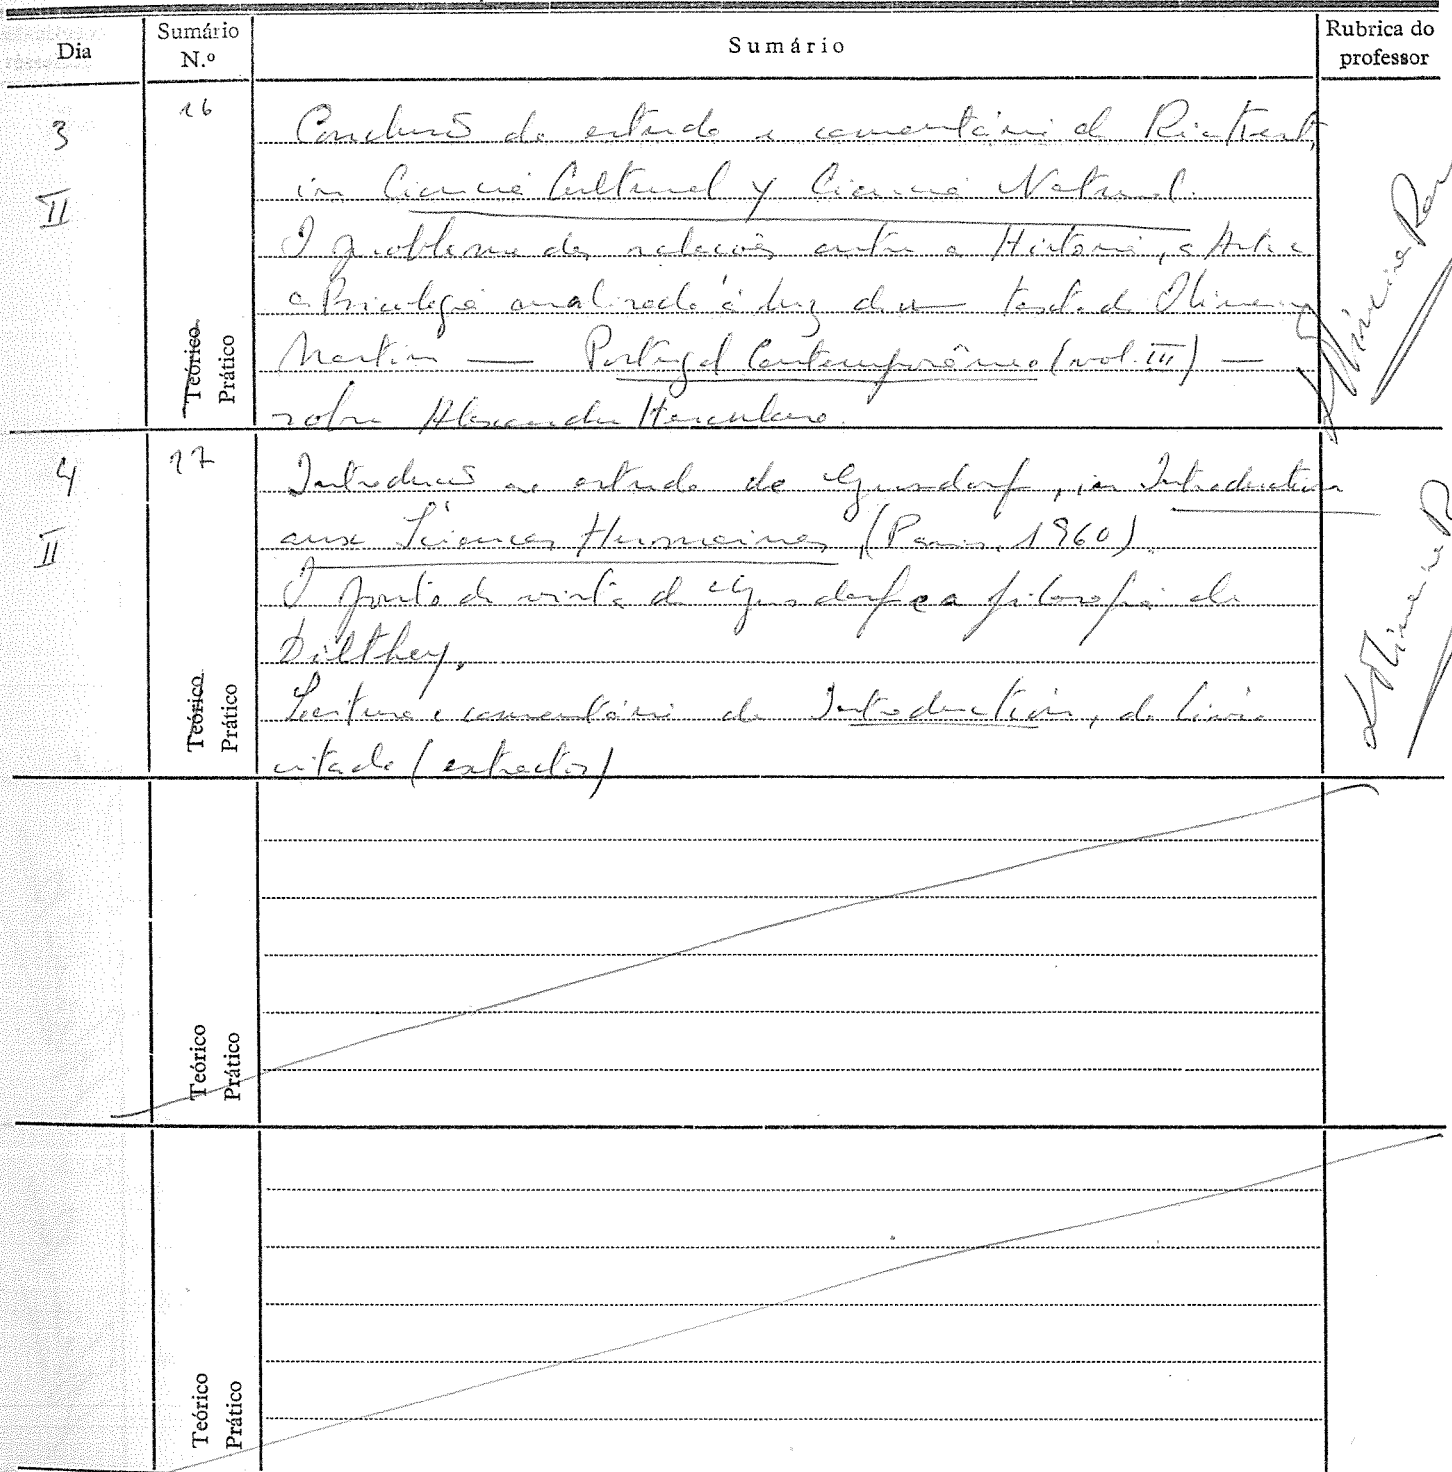 Dia
Sumário N.º
Sumário
Rubrica do professor
3
II
16
Teórico
Prático
Conclusão do estudo e comentário de Rickert,
in Ciencia Cultural y Ciencia Natural.
O problema das relações entre a História, a Arte e
a Psicologia analisado à luz dum texto de Oliveira
Martins — Portugal Contemporâneo (vol. III) —
sobre Alexandre Herculano.
4
II
17
Teórico
Prático
Introdução ao estudo de Gusdorf, in Introduction
aux Sciences Humaines, (Paris, 1960).
O ponto de vista de Gusdorf e a filosofia de
Dilthey.
Leitura e comentário da Introduction, do livro
citado (extractos)
Teórico
Prático
Teórico
Prático